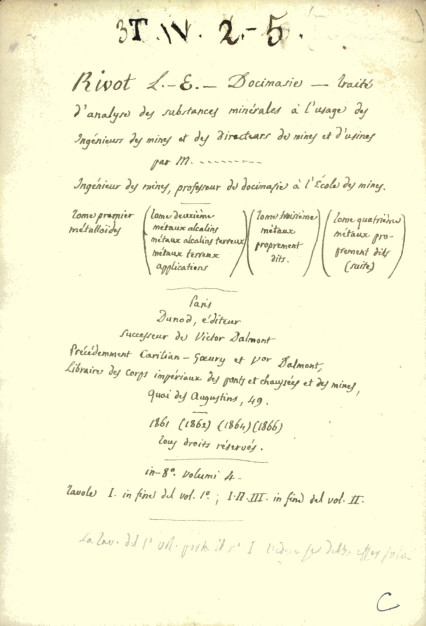 3T. IV. 2.-5.
Rivot L.-E. — Docimasie — traité
d'analyse des substances minérales à l'usage des
Ingénieurs des mines et des directeurs de mines et d'usines
par M. ---------
Ingénieur des mines, professeur de docimasie à l'École des mines.
tome premier
métalloïdes
(tome deuxième
métaux alcalins
métaux alcalins terreux
métaux terreux
applications)
(tome troisième
métaux
proprement
dits.)
(tome quatrième
métaux pro-
prement dits
(suite))
Paris
Dunod, éditeur
successeur de Victor Dalmont
Précédemment Carilian-Gœury et Vor Dalmont,
Libraire des corps impériaux des ponts et chaussées et des mines,
Quai des Augustins, 49.
1861 (1862) (1864) (1866)
tous droits réservés.
in-8°. volumi 4.
tavole I. in fine del vol. 1°.; I. II. III. in fine del vol. II.
La tav. del 1° vol. porta il n° I
C